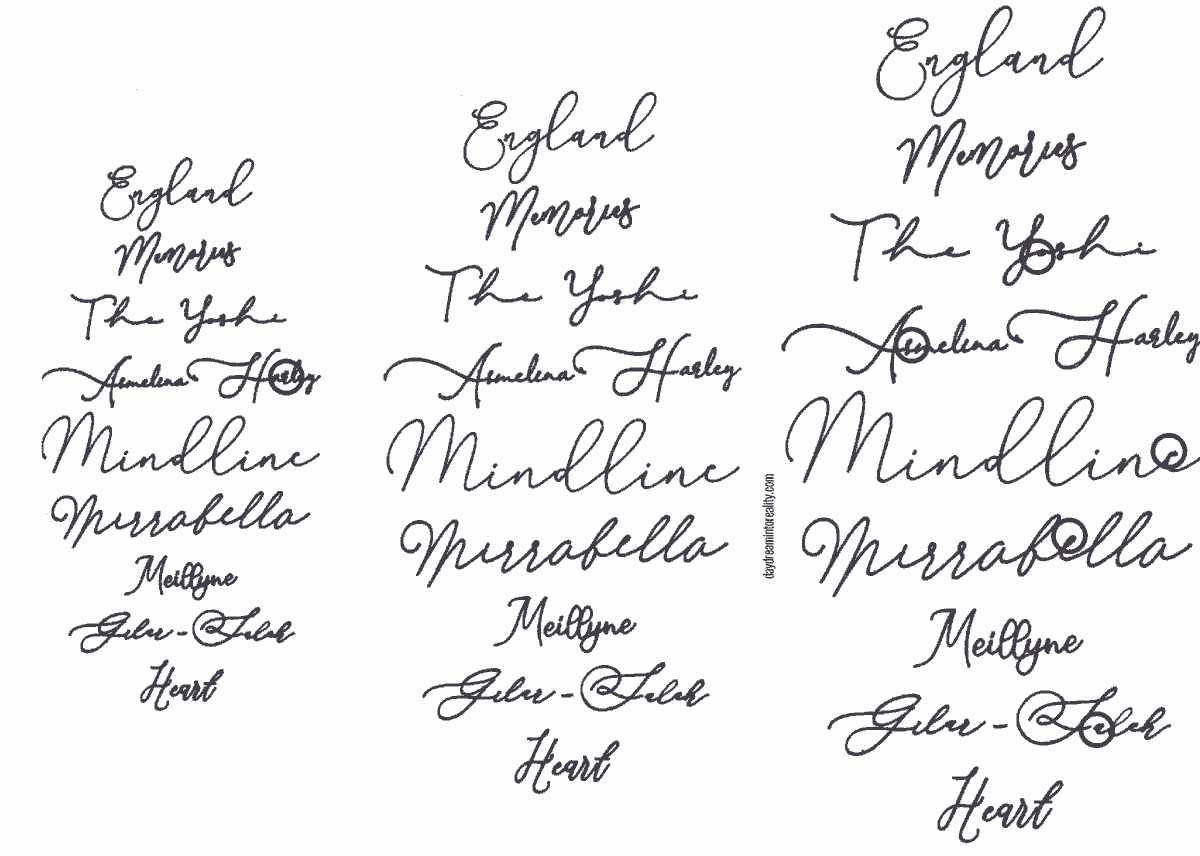 England
Memories
The Yoshi
Asmelina Harley
Mindline
Mirrabella
Meillyne
Gilar - Salah
Heart
England
Memories
The Yoshi
Asmelina Harley
Mindline
Mirrabella
Meillyne
Gilar - Salah
Heart
daydreamintoreality.com
England
Memories
The Yoshi
Asmelina Harley
Mindline
Mirrabella
Meillyne
Gilar - Salah
Heart